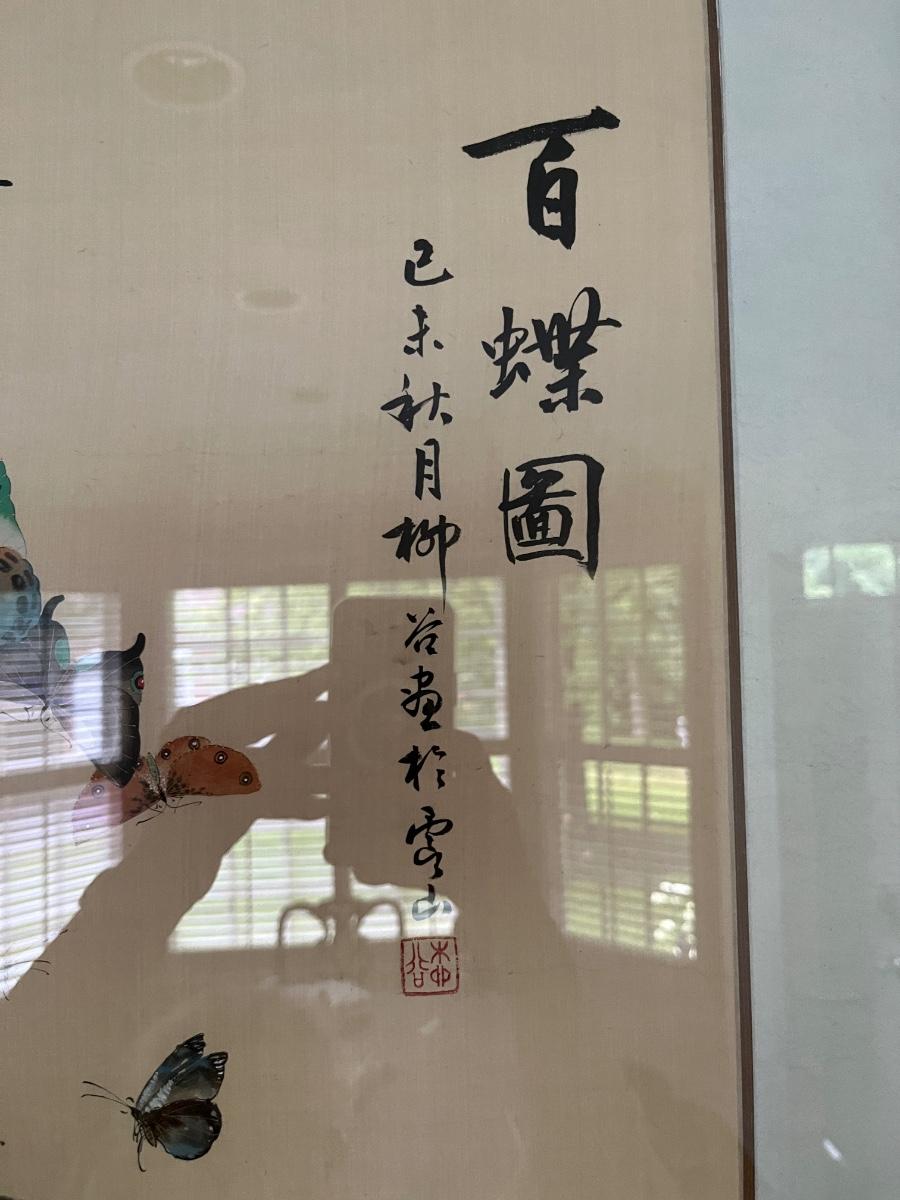 百蝶圖
己未秋月柳谷畫於山
柳谷